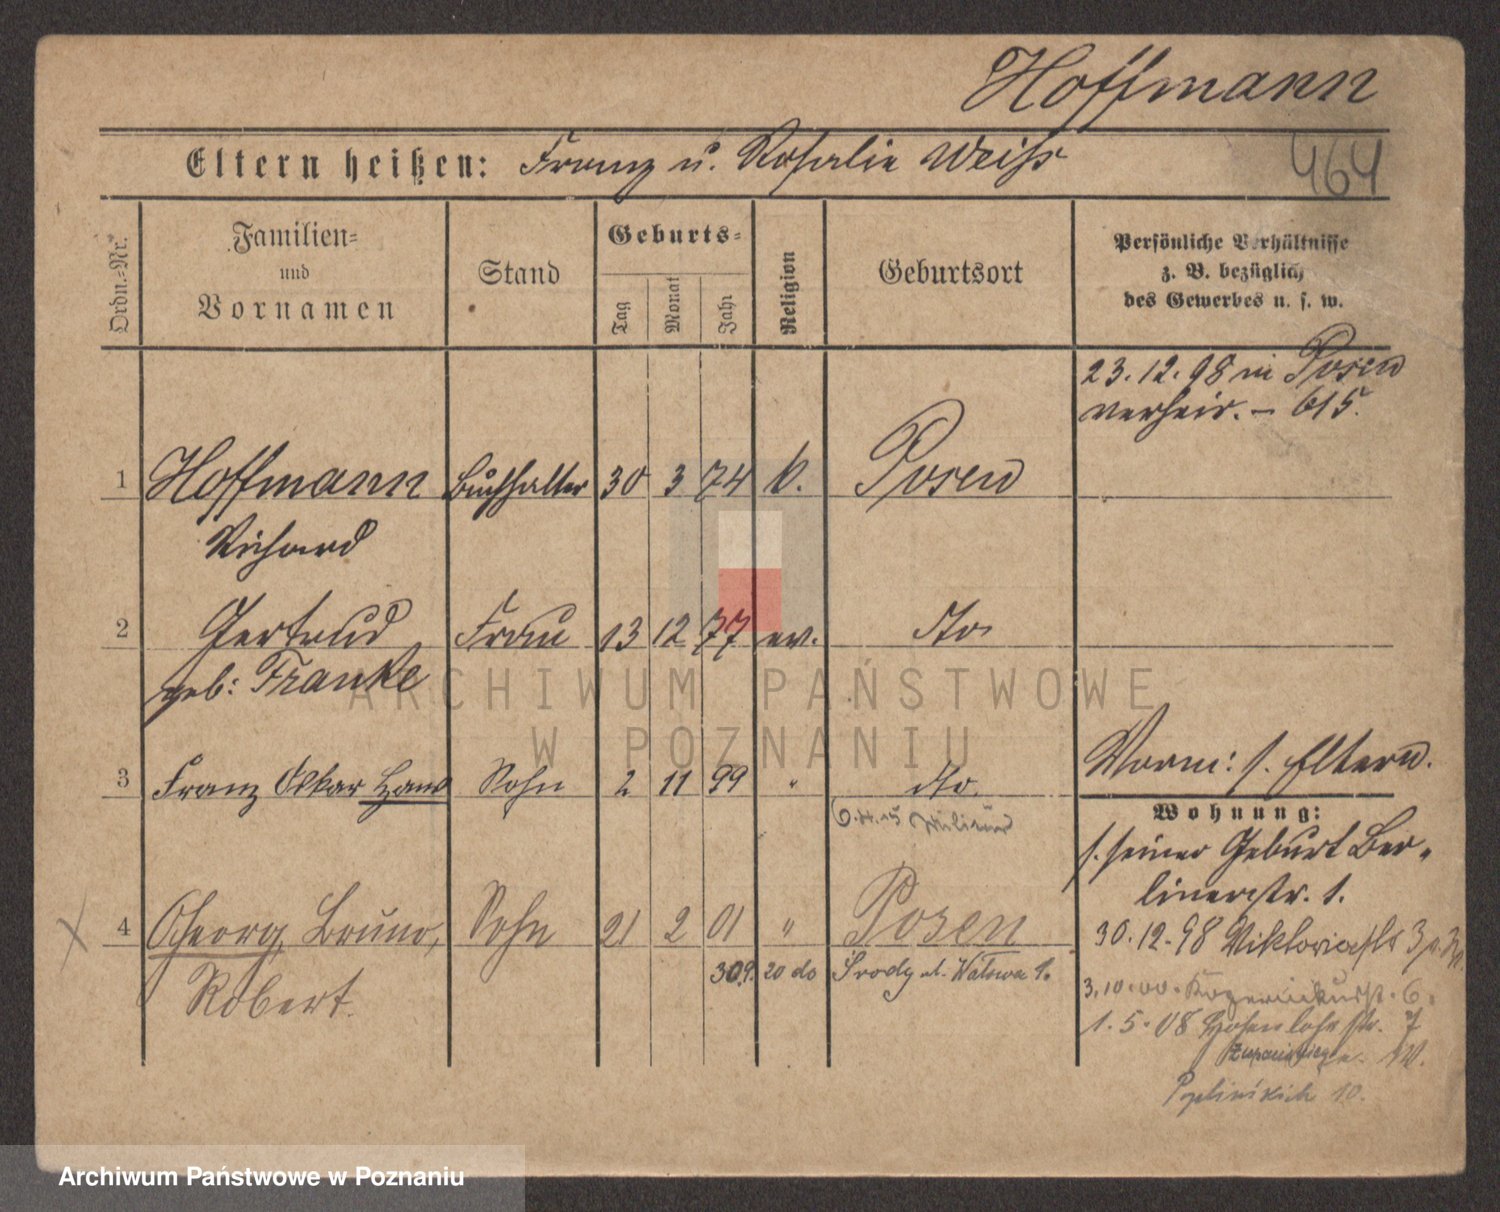 Hoffmann
464
Eltern heißen: Franz u. Rosalie Weiss
Ordn.=Nr.
Familien=
und
Vornamen
Stand
Geburts=
Tag
Monat
Jahr
Religion
Geburtsort
Persönliche Verhältnisse
z. B. bezüglich
des Gewerbes u. s. w.
23.12.98 in Posen
verheir. – 615.
1 Hoffmann Buchhalter 30 3 74 k. Posen
Richard
2 Gertrud Frau 13 12 77 ev. dto
geb: Franke
3 Franz Oskar Hans Sohn 2 11 99 " dto.
Militär
Vorm: s. Eltern.
Wohnung:
s. seiner Geburt Ber-
linerstr. 1.
4 Georg Bruno, Sohn 21 2 01 " Posen
Robert.
30.9. 20 do Środy ul. 1.
30.12.98 Viktoriastr
3.10.00. 6.
1.5.08 Hohenlohestr. 7
10.
ARCHIWUM PAŃSTWOWE
W POZNANIU
Archiwum Państwowe w Poznaniu